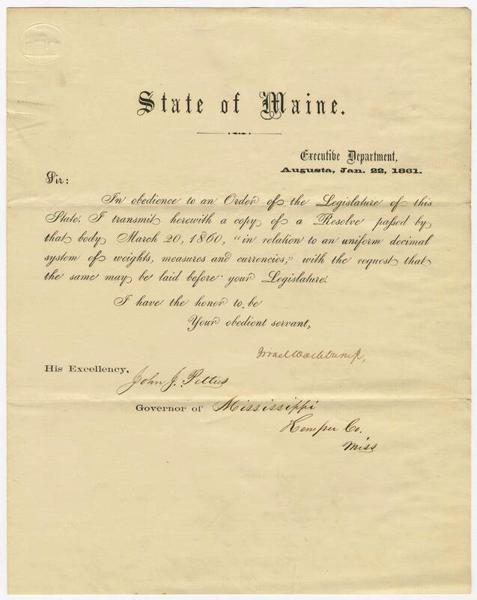 State of Maine.
Executive Department,
Augusta, Jan. 22, 1861.
Sir:
In obedience to an Order of the Legislature of this
State, I transmit herewith a copy of a Resolve passed by
that body March 20, 1860, "in relation to an uniform decimal
system of weights, measures and currencies," with the request that
the same may be laid before your Legislature.
I have the honor to be
Your obedient servant,
Israel Washburn, Jr,
His Excellency,
John J. Pettus
Governor of Mississippi
Kemper Co.
Miss